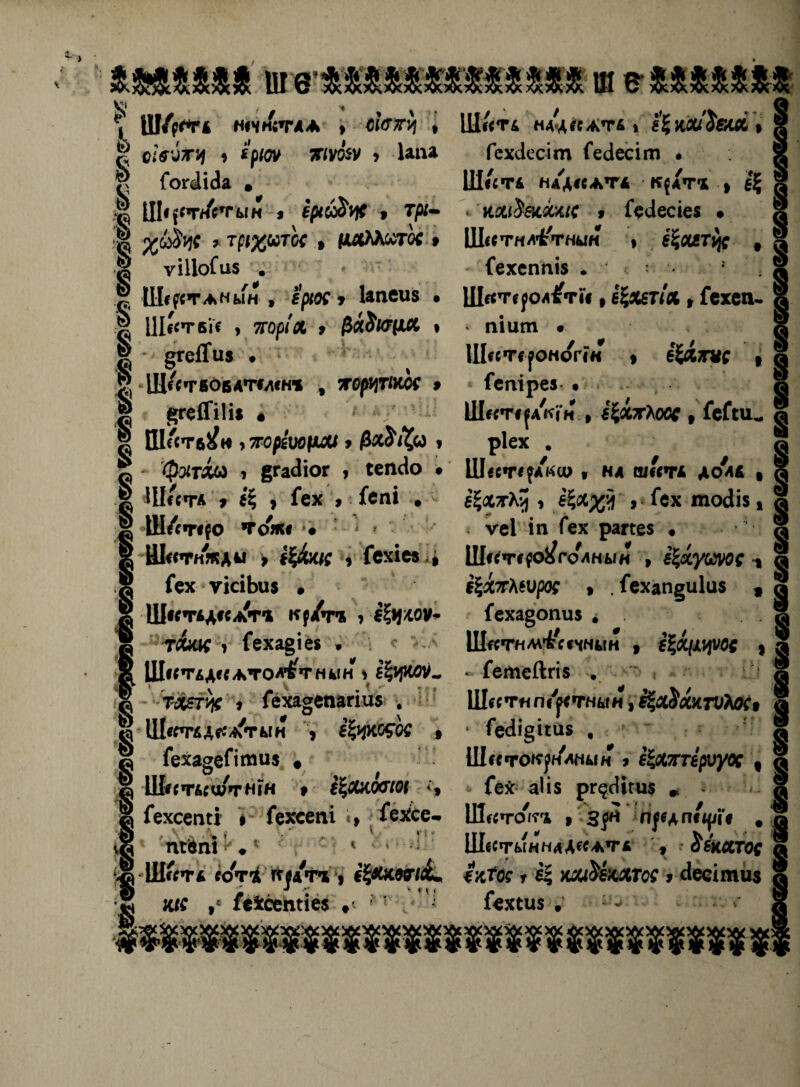 Ш е Ш е
Ше́рсть нечи́стаѧ , οἰσπὴ ,
οἰσύπη , ἔριον πινόεν , lana
fordida .
Шерсти́стый , ἐριώδης , τρι-
χώδης , τριχωτὸς , μαλλωτὸς ,
villofus .
Шерстѧны́й , ἔριος , laneus .
Ше́ствїе , πορία , βάδισμα ,
greffus .
Ше́ствовательнъ , πορητικὸς ,
greffilis .
Ше́ствꙋю , πορέυομαι , βαδίζω ,
φοιτάω , gradior , tendo .
Ше́сть , ἕξ , fex , feni .
Ше́стеро то́же .
Шести́жды , ἑξάκις , fexies ,
fex vicibus .
Шестьдесѧ́тъ кра́тъ , ἑξηκον-
τάκις , fexagies .
Шестьдесѧтолѣ́тный , ἑξηκον-
ταετὴς , fexagenarius .
Шестьдесѧ́тый , ἑξηκοςὸς ,
fexagefimus .
Шестьсѡ́тнїй , ἑξακόσιοι ,
fexcenti , fexceni , fexce-
nteni .
Ше́сть со́тъ кра́тъ , ἑξακοσιά-
κις , fexcenties .
Ше́сть на́десѧть , ἑξκαίδεκα ,
fexdecim fedecim .
Ше́сть на́десѧть кра́тъ , ἑξ
καιδεκάκις , fedecies .
Шестилѣ́тный , ἑξαετὴς ,
fexennis .
Шестеролѣ́тїе , ἑξαετία , fexen-
nium .
Шестероно́гїй , ἑξάπυς ,
fenipes .
Шестера́кїй , ἑξάπλοος , feftu-
plex .
Шестера́кѡ , на ше́сть до́ль ,
ἑξαπλῆ , ἑξαχῆ , fex modis ,
vel in fex partes .
Шестероꙋго́лный , ἑξάγωνος ,
ἑξάπλευρος , fexangulus ,
fexagonus .
Шестимѣ́сечный , ἑξάμηνος ,
femeftris .
Шестипе́рстный , ἑξαδάκτυλος ,
fedigitus ,
Шестокри́лный , ἑξαπτέρυγος ,
fex alis pręditus .
Шесто́къ , зри предпе́щїе .
Шесты́йнадесѧть , δέκατος
ἕκτος , ἑξ καιδέκατος , decimus
fextus .